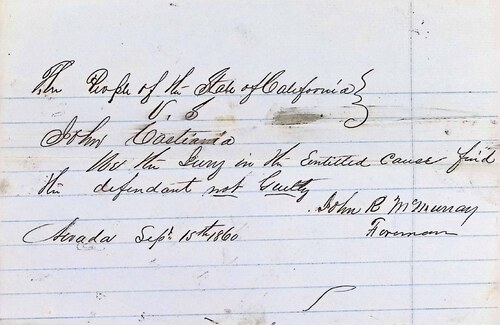 The People of the State of California
V. S
John Castiania
We the Jury in the Entitled Cause find
the defendant not Guilty
John R McMurray
Foreman
Nevada Sept. 15th 1860